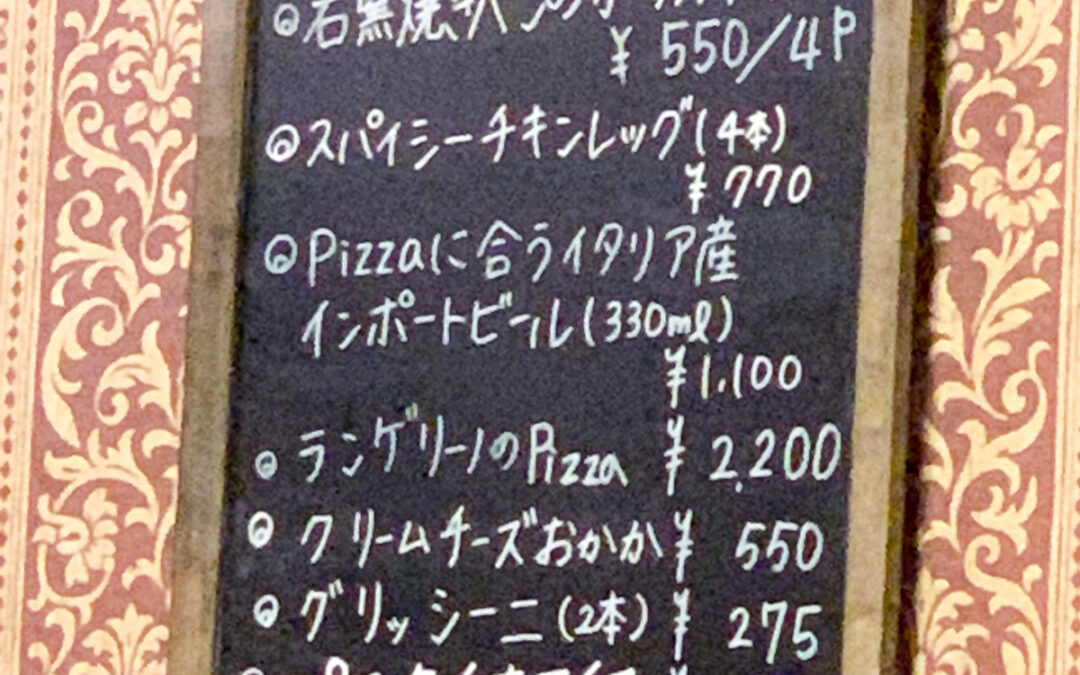 ◎石窯焼きパン
¥550/4P
◎スパイシーチキンレッグ(4本)
¥770
◎Pizzaに合うイタリア産
インポートビール(330ml)
¥1,100
◎ラングリーノのPizza ¥2,200
◎クリームチーズおかか¥550
◎グリッシーニ(2本)¥275